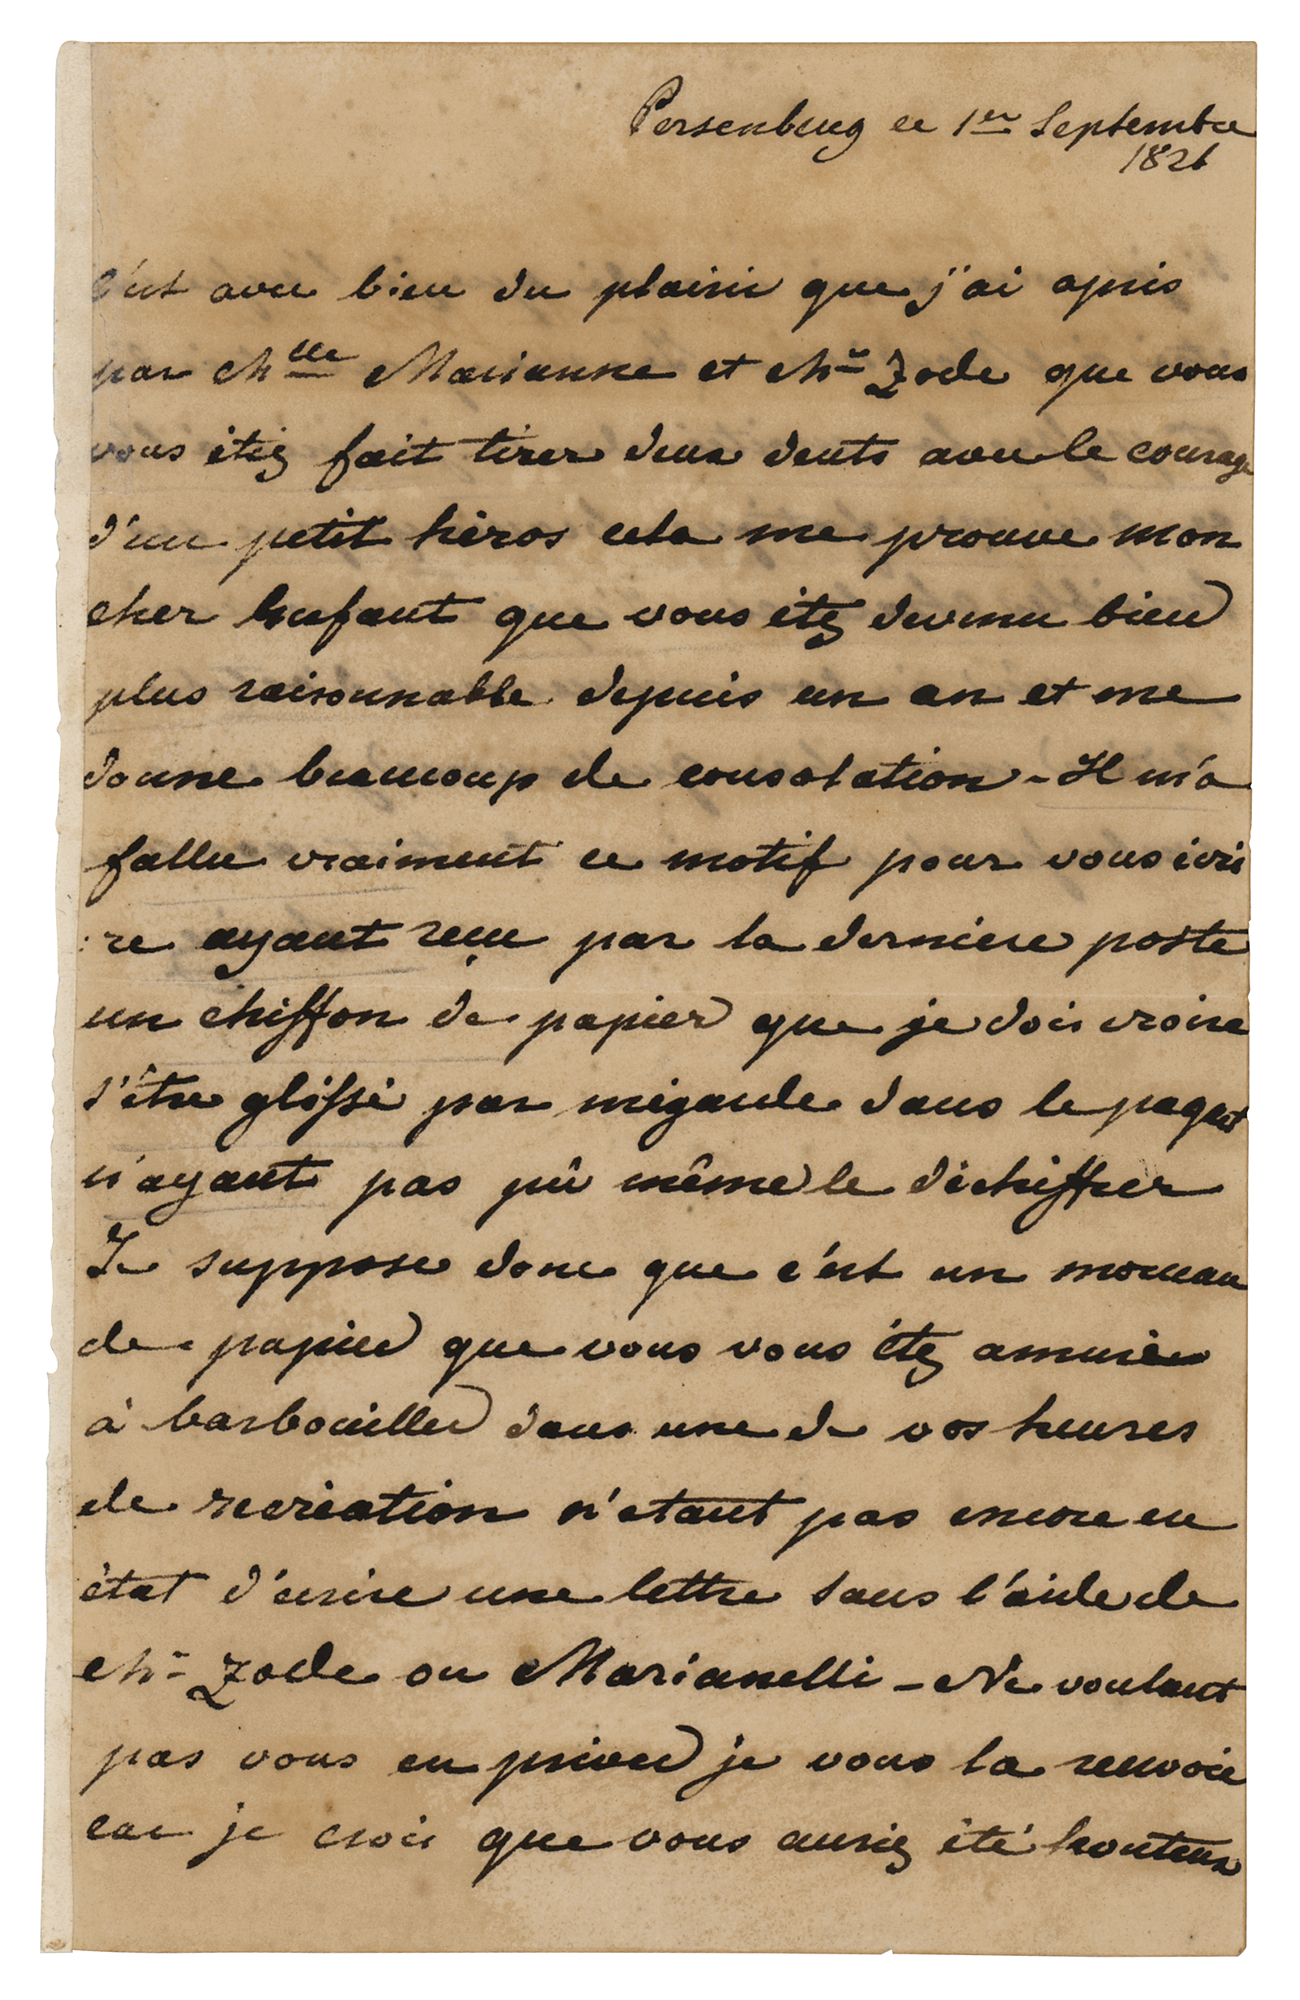 Persenbeug ce 1er Septembre
1826
C'est avec bien du plaisir que j'ai apris
par Mlle Marianne et Mr Zode que vous
vous étiez fait tirer deux dents avec le courage
d'un petit héros cela me prouve mon
cher Enfant que vous étez devenu bien
plus raisonnable depuis un an et me
donne beaucoup de consolation - Il m'a
fallu vraiment ce motif pour vous écri
:re ayant reçu par la derniere poste
un chiffon de papier que je dois croire
s'être glissé par mégarde dans le paquet
n'ayant pas pû même le déchiffrer
Je suppose donc que c'est un morceau
de papier que vous vous étez amusé
à barbouiller dans une de vos heures
de recréation n'etant pas encore en
état d'écrire une lettre sans l'aide de
Mr Zode ou Marianelli - Ne voulant
pas vous en priver je vous la renvoie
car je crois que vous auriez été honteux